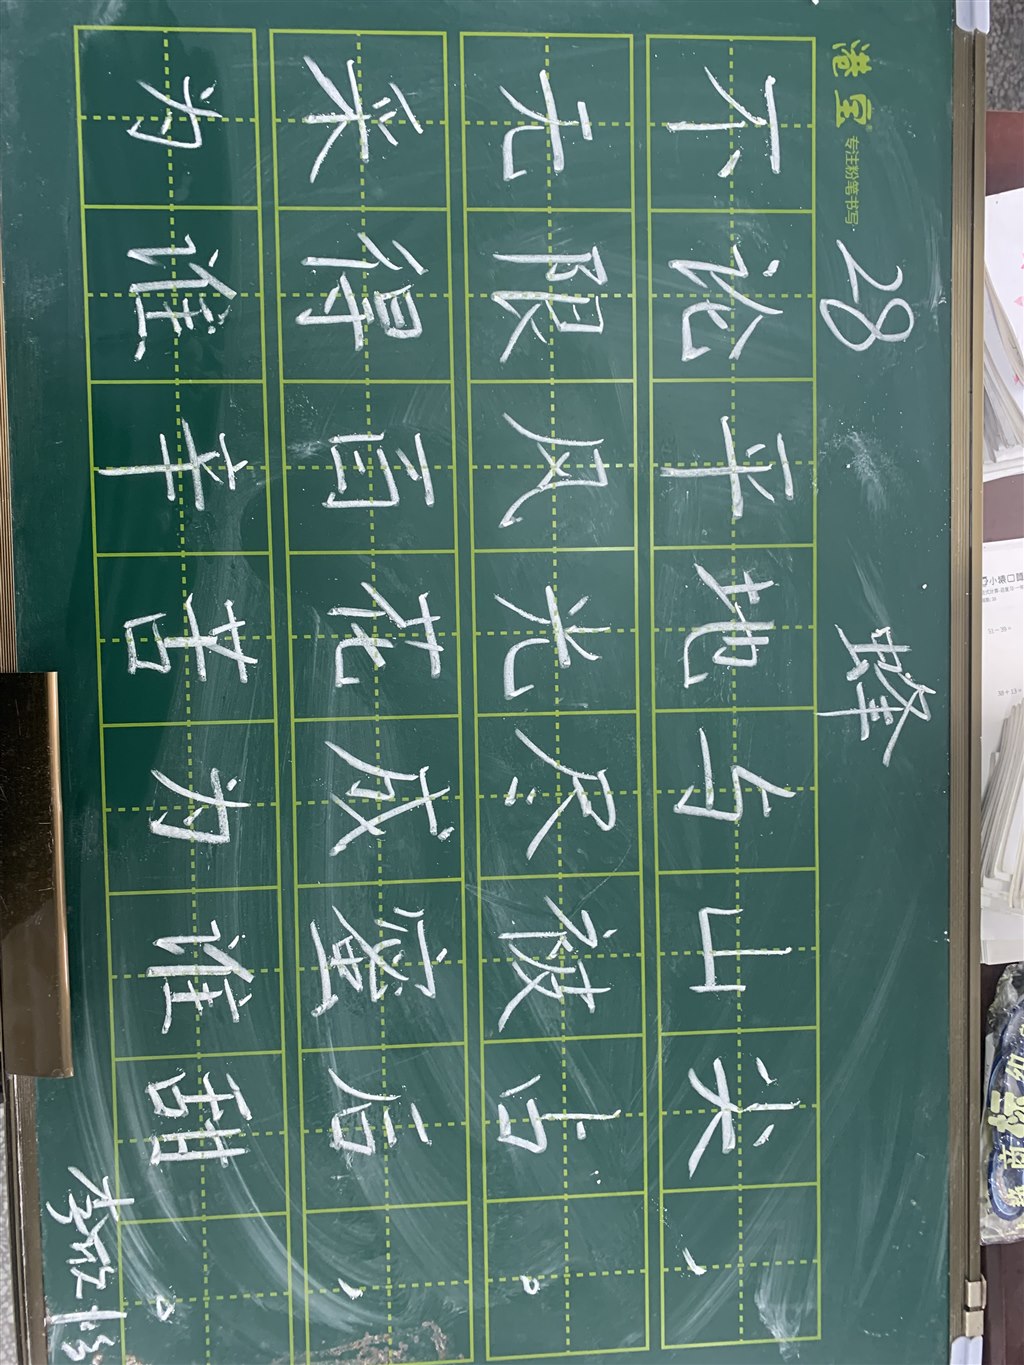 港宝 专注粉笔书写
28 蜂
不论平地与山尖，
无限风光尽被占。
采得百花成蜜后，
为谁辛苦为谁甜。